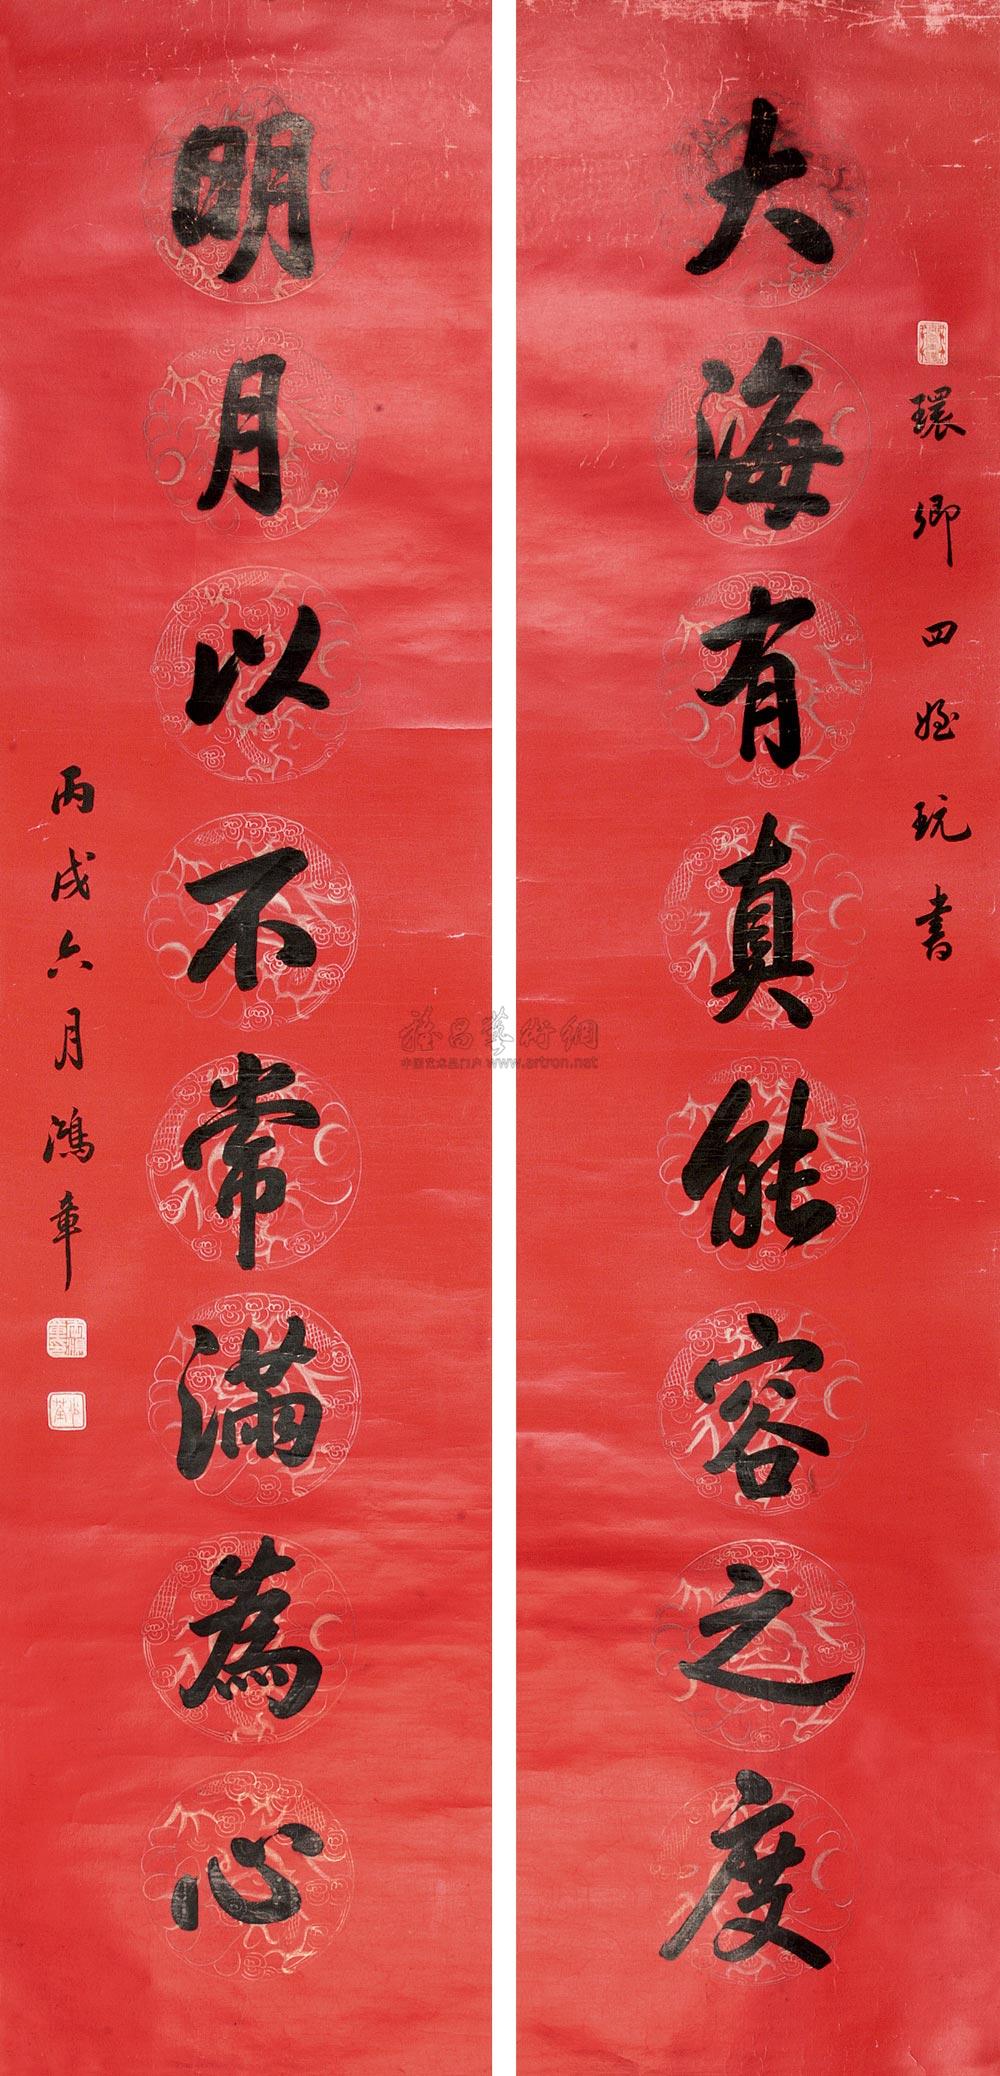 環卿四姪玩書
大海有真能容之度
明月以不常滿為心
丙戌六月鴻章
雅昌藝術網
中国艺术品门户 www.artron.net